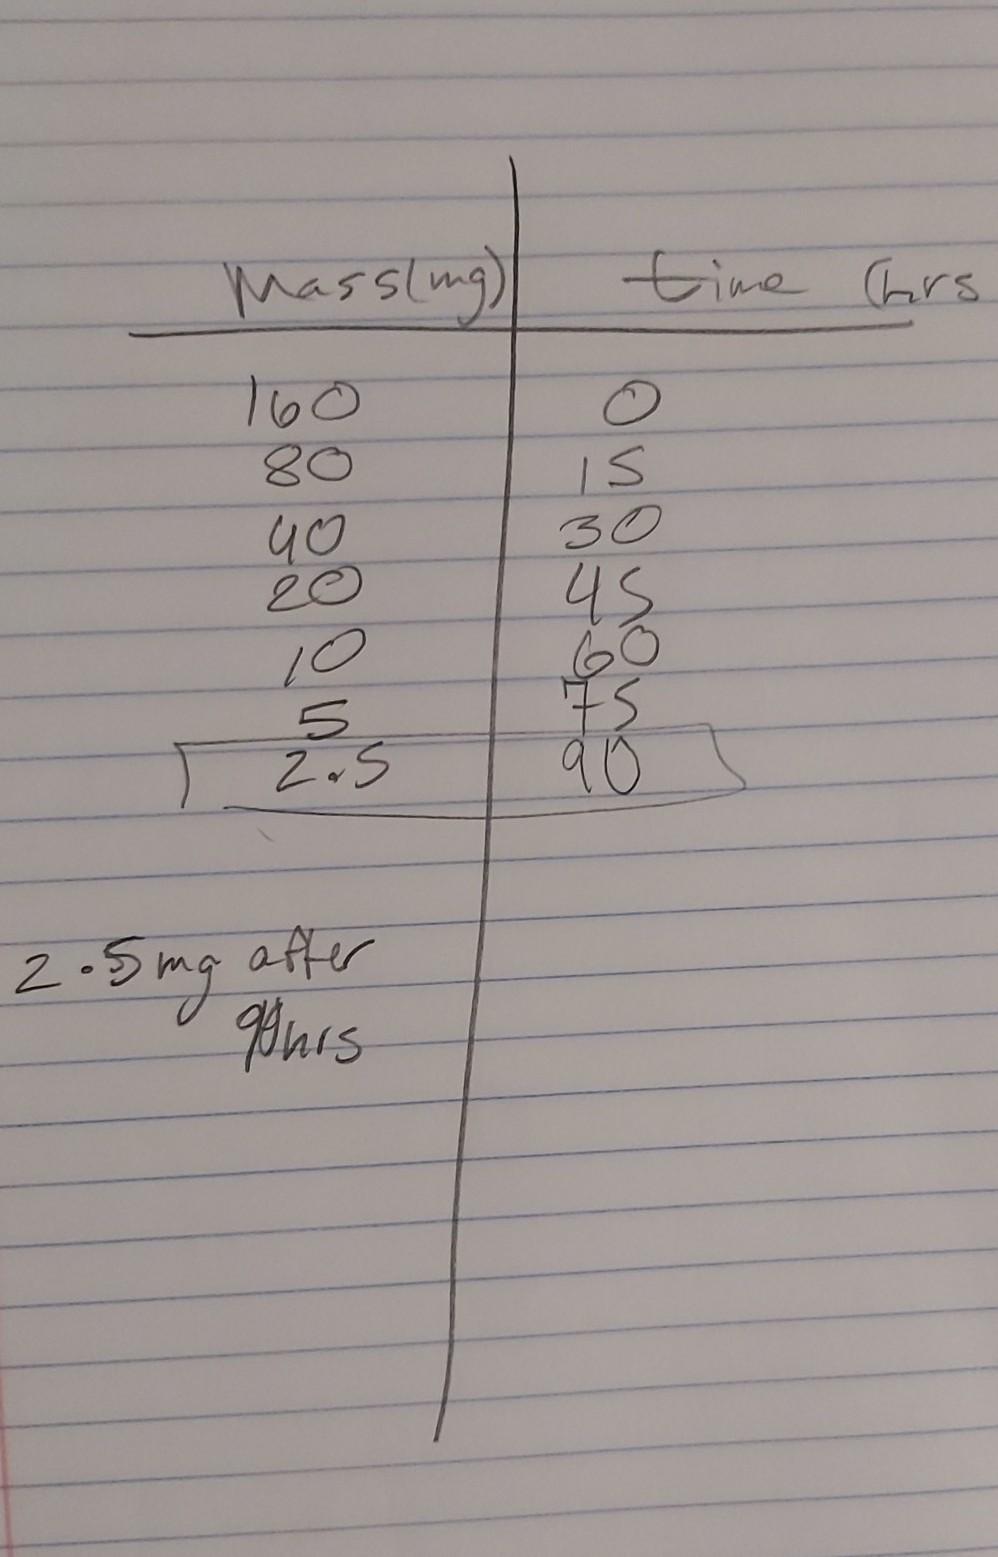 Mass(mg) time (hrs
160 0
80 15
40 30
20 45
10 60
5 75
2.5 90
2.5mg after
90hrs